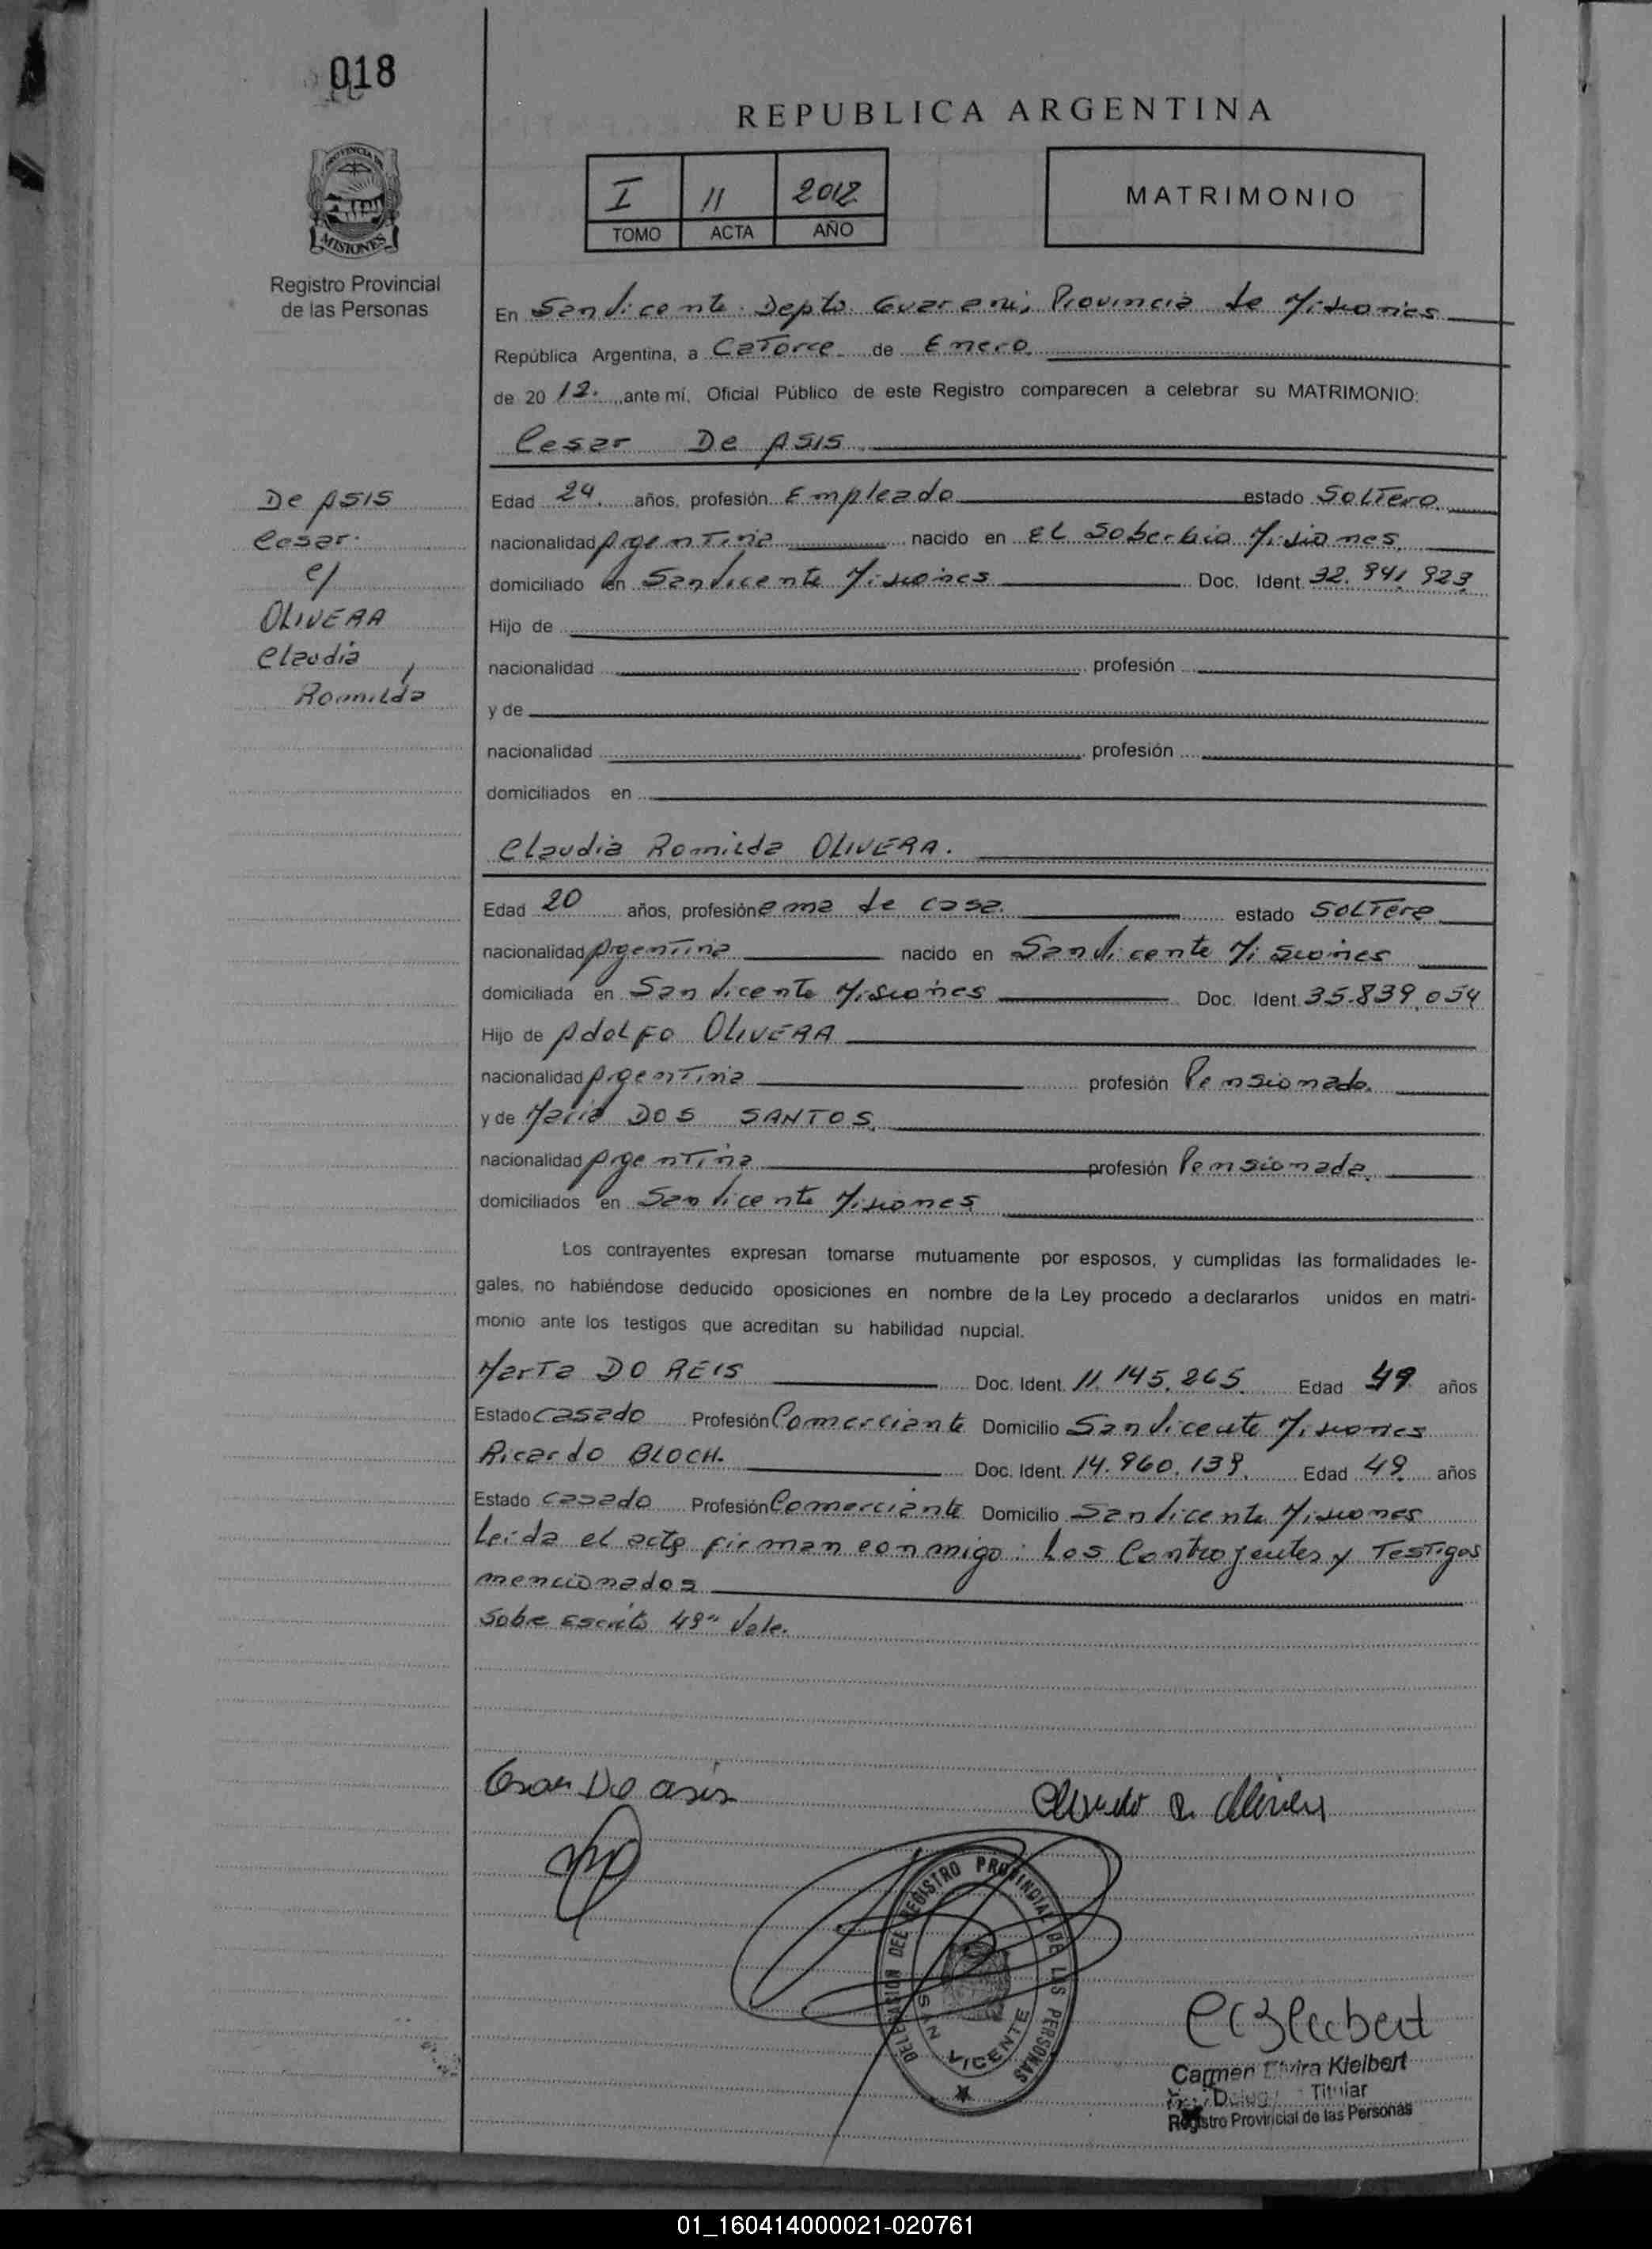 018
REPUBLICA ARGENTINA
I 11 2012
TOMO ACTA AÑO
MATRIMONIO
PROVINCIA DE
MISIONES
Registro Provincial
de las Personas
En San Vicente Depto. Guarani, Provincia de Misiones
República Argentina, a Catorce de Enero
de 20 12. ante mí, Oficial Público de este Registro comparecen a celebrar su MATRIMONIO:
Cesar De ASIS
De ASIS
Cesar.
c/
OLIVERA
Claudia
Romilda
Edad 24. años, profesión Empleado estado Soltero
nacionalidad Argentina nacido en El Soberbio Misiones
domiciliado en San Vicente Misiones Doc. Ident. 32.941.923
Hijo de
nacionalidad profesión
y de
nacionalidad profesión
domiciliados en
Claudia Romilda OLIVERA.
Edad 20 años, profesión ama de casa. estado Soltera
nacionalidad Argentina nacido en San Vicente Misiones
domiciliada en San Vicente Misiones Doc. Ident. 35.839.054
Hijo de Adolfo OLIVERA
nacionalidad Argentina profesión Pensionado.
y de Maria DOS SANTOS.
nacionalidad Argentina profesión Pensionada.
domiciliados en San Vicente Misiones
Los contrayentes expresan tomarse mutuamente por esposos, y cumplidas las formalidades le-
gales, no habiéndose deducido oposiciones en nombre de la Ley procedo a declararlos unidos en matri-
monio ante los testigos que acreditan su habilidad nupcial.
Marta DO REIS Doc. Ident. 11.145.265. Edad 49 años
Estado casado Profesión Comerciante Domicilio San Vicente Misiones
Ricardo BLOCH. Doc. Ident. 14.960.139. Edad 49 años
Estado casado Profesión Comerciante Domicilio San Vicente Misiones
Leida el acta firman conmigo: Los Contrayentes y Testigos
mencionados
Sobre Escrito 49" Vale.
Cesar De asis
Claudia R. Olivera
DELEGASION DEL REGISTRO PROVINCIAL DE LAS PERSONAS
SAN VICENTE
Carmen Elvira Kleibert
Titular
Registro Provincial de las Personas
01_160414000021-020761